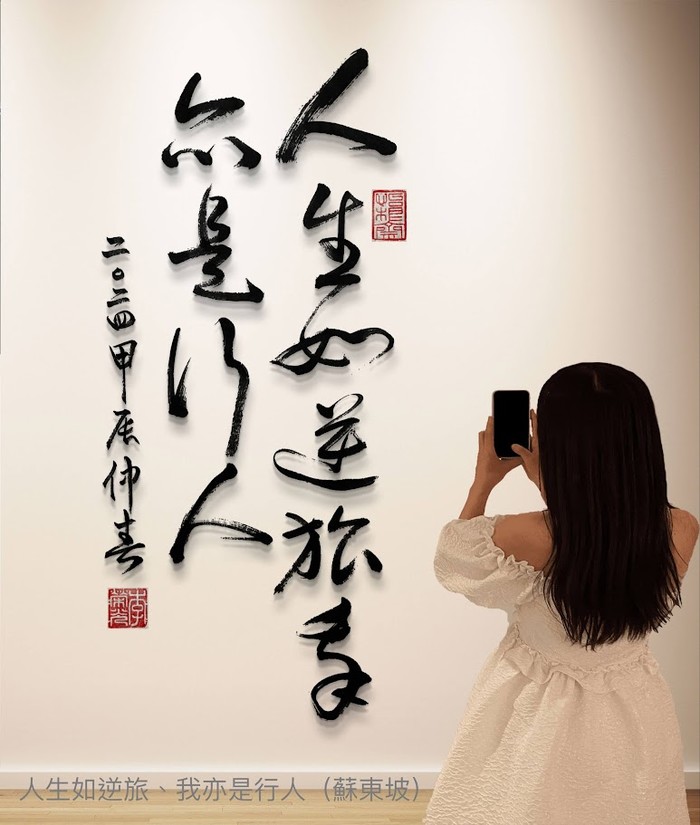 人生如逆旅我
亦是行人
二〇二四甲辰仲春
人生如逆旅、我亦是行人（蘇東坡）